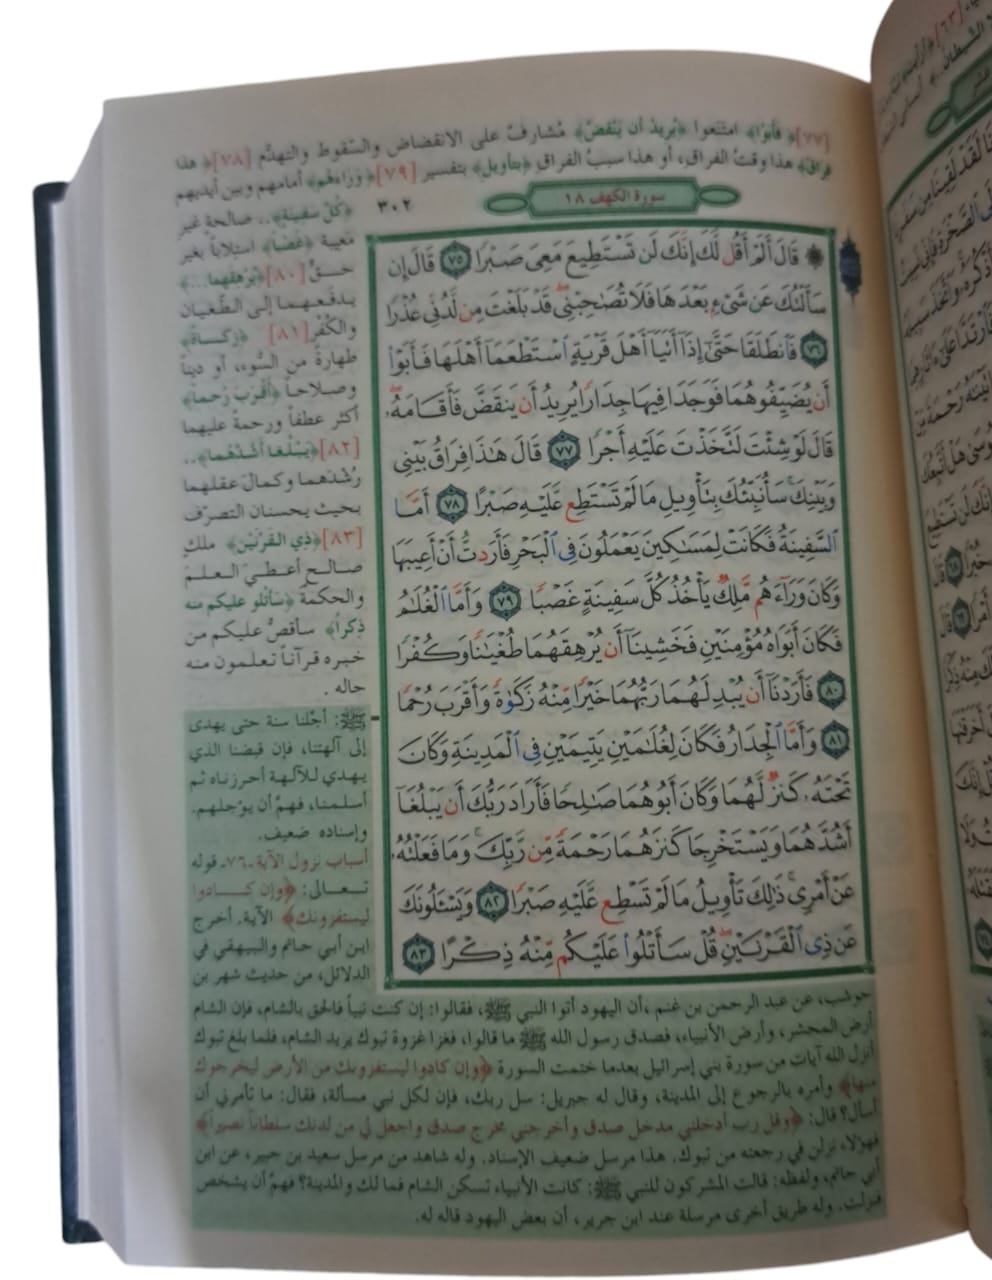 [٧٧] ﴿فأبَوْا﴾ امتنَعوا ﴿يُريدُ أن يَنْقضَّ﴾ مُشارفٌ على الانقضاض والسُّقوط والتهدُّم [٧٨] ﴿هذا
فراقُ﴾ هذا وقتُ الفراق، أو هذا سببُ الفراق ﴿بتأويل﴾ بتفسير [٧٩] ﴿وَرَاءَهُم﴾ أمامهم وبين أيديهم
سورة الكهف ١٨
٣٠٢
﴿كُلَّ سفينة﴾.. صالحةٍ غير
معيبة ﴿غَصْباً﴾ استلاباً بغير
حقٍّ [٨٠] ﴿يُرْهِقَهما...﴾
يدفَعهما إلى الطُّغيان
والكُفْر [٨١] ﴿زكاةً﴾
طهارةً من السُّوء، أو ديناً
وصلاحاً ﴿أقْرَبَ رُحماً﴾
أكثر عطفاً ورحمةً عليهما
[٨٢] ﴿يَبْلُغا أشُدَّهُما﴾..
رُشْدَهما وكمالَ عقلهما
بحيث يحسنان التصرّف
[٨٣] ﴿ذي القرْنَيْن﴾ ملكٍ
صالحٍ أعطيَ العلمَ
والحكمةَ ﴿سأتلو عليكم منه
ذكراً﴾ سأقصُّ عليكم من
خبره قرآناً تعلمون منه
حاله .
۞ قَالَ أَلَمْ أَقُل لَّكَ إِنَّكَ لَن تَسْتَطِيعَ مَعِيَ صَبْرًا ٧٥ قَالَ إِن
سَأَلْتُكَ عَن شَيْءٍ بَعْدَهَا فَلَا تُصَٰحِبْنِي ۖ قَدْ بَلَغْتَ مِن لَّدُنِّي عُذْرًا
٧٦ فَٱنطَلَقَا حَتَّىٰٓ إِذَآ أَتَيَآ أَهْلَ قَرْيَةٍ ٱسْتَطْعَمَآ أَهْلَهَا فَأَبَوْا۟
أَن يُضَيِّفُوهُمَا فَوَجَدَا فِيهَا جِدَارًا يُرِيدُ أَن يَنقَضَّ فَأَقَامَهُۥ ۖ
قَالَ لَوْ شِئْتَ لَتَّخَذْتَ عَلَيْهِ أَجْرًا ٧٧ قَالَ هَٰذَا فِرَاقُ بَيْنِي
وَبَيْنِكَ ۚ سَأُنَبِّئُكَ بِتَأْوِيلِ مَا لَمْ تَسْتَطِع عَّلَيْهِ صَبْرًا ٧٨ أَمَّا
ٱلسَّفِينَةُ فَكَانَتْ لِمَسَٰكِينَ يَعْمَلُونَ فِي ٱلْبَحْرِ فَأَرَدتُّ أَنْ أَعِيبَهَا
وَكَانَ وَرَآءَهُم مَّلِكٌ يَأْخُذُ كُلَّ سَفِينَةٍ غَصْبًا ٧٩ وَأَمَّا ٱلْغُلَٰمُ
فَكَانَ أَبَوَاهُ مُؤْمِنَيْنِ فَخَشِينَآ أَن يُرْهِقَهُمَا طُغْيَٰنًا وَكُفْرًا
٨٠ فَأَرَدْنَآ أَن يُبْدِلَهُمَا رَبُّهُمَا خَيْرًا مِّنْهُ زَكَوٰةً وَأَقْرَبَ رُحْمًا
٨١ وَأَمَّا ٱلْجِدَارُ فَكَانَ لِغُلَٰمَيْنِ يَتِيمَيْنِ فِي ٱلْمَدِينَةِ وَكَانَ
تَحْتَهُۥ كَنزٌ لَّهُمَا وَكَانَ أَبُوهُمَا صَٰلِحًا فَأَرَادَ رَبُّكَ أَن يَبْلُغَآ
أَشُدَّهُمَا وَيَسْتَخْرِجَا كَنزَهُمَا رَحْمَةً مِّن رَّبِّكَ ۚ وَمَا فَعَلْتُهُۥ
عَنْ أَمْرِي ۚ ذَٰلِكَ تَأْوِيلُ مَا لَمْ تَسْطِع عَّلَيْهِ صَبْرًا ٨٢ وَيَسْـَٔلُونَكَ
عَن ذِي ٱلْقَرْنَيْنِ ۖ قُلْ سَأَتْلُوا۟ عَلَيْكُم مِّنْهُ ذِكْرًا ٨٣
ﷺ: أجّلنا سنة حتى يهدى
إلى آلهتنا، فإن قبضنا الذي
يهدي للآلهة أحرزناه ثم
أسلمنا، فهمّ أن يؤجلهم.
وإسناده ضعيف.
أسباب نزول الآية ـ ٧٦ـ قوله
تعالى: ﴿وإن كادوا
ليستفزونك﴾ الآية. أخرج
ابن أبي حاتم والبيهقي في
الدلائل، من حديث شهر بن
حوشب، عن عبد الرحمن بن غنم ،أن اليهود أتوا النبي ﷺ ، فقالوا: إن كنت نبياً فالحق بالشام، فإن الشام
أرض المحشر، وأرض الأنبياء، فصدق رسول الله ﷺ ما قالوا، فغزا غزوة تبوك يريد الشام، فلما بلغ تبوك
أنزل الله آيات من سورة بني إسرائيل بعدما ختمت السورة ﴿وإن كادوا ليستفزونك من الأرض ليخرجوك
منها﴾ وأمره بالرجوع إلى المدينة، وقال له جبريل: سل ربك، فإن لكل نبي مسألة، فقال: ما تأمرني أن
أسأل؟ قال: ﴿وقل رب أدخلني مدخل صدق وأخرجني مخرج صدق واجعل لي من لدنك سلطاناً نصيراً﴾
فهؤلاء نزلن في رجعته من تبوك. هذا مرسل ضعيف الإسناد. وله شاهد من مرسل سعيد بن جبير، عن ابن
أبي حاتم، ولفظه: قالت المشركون للنبي ﷺ: كانت الأنبياء تسكن الشام فما لك والمدينة؟ فهمّ أن يشخص
فنزلت. وله طريق أخرى مرسلة عند ابن جرير، أن بعض اليهود قاله له.